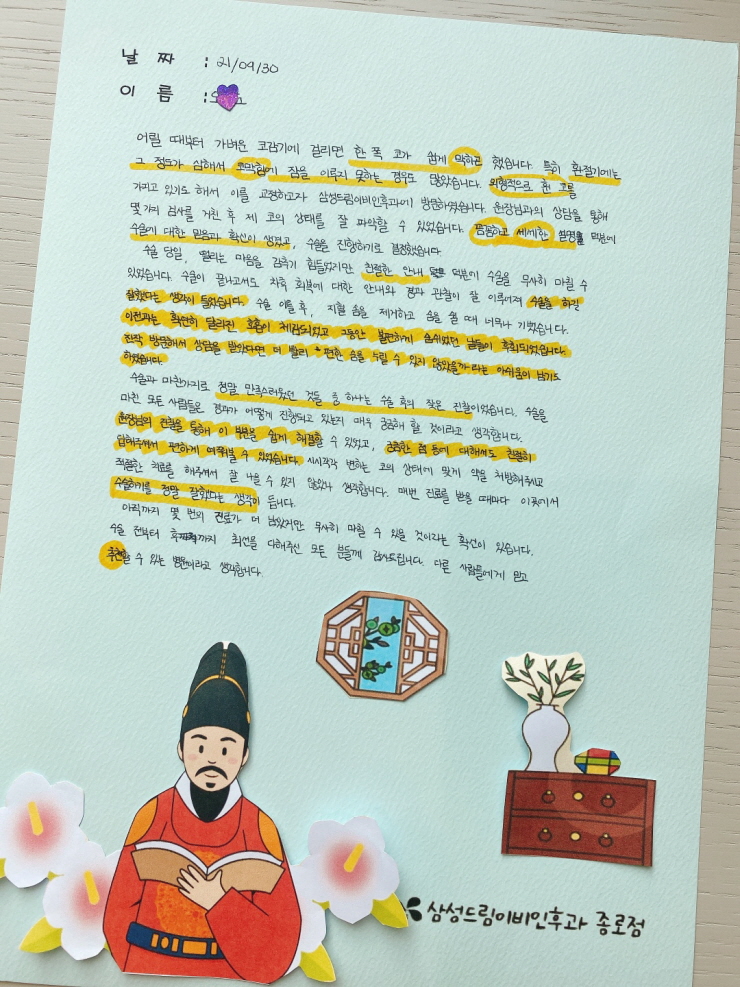 날 짜 : 21/09/30
이 름 :
어릴 때부터 가벼운 코감기에 걸리면 한 쪽 코가 쉽게 막히곤 했습니다. 특히 환절기에는
그 정도가 심해서 코막힘에 잠을 이루지 못하는 경우도 많았습니다. 외형적으로 휜 코를
가지고 있기도 해서 이를 교정하고자 삼성드림이비인후과에 방문하였습니다. 원장님과의 상담을 통해
몇가지 검사를 거친 후 제 코의 상태를 잘 파악할 수 있었습니다. 꼼꼼하고 세세한 설명들 덕분에
수술에 대한 믿음과 확신이 생겼고, 수술을 진행하기로 결정했습니다.
수술 당일, 떨리는 마음을 감추기 힘들었지만 친절한 안내 덕분에 수술을 무사히 마칠 수
있었습니다. 수술이 끝나고서도 차후 회복에 대한 안내와 경과 관찰이 잘 이루어져 수술을 하길
잘했다는 생각이 들었습니다. 수술 이틀 후, 지혈 솜을 제거하고 숨을 쉴 때 너무나 기뻤습니다.
이전과는 확연히 달라진 호흡이 체감되었고 그동안 불편하게 숨쉬었던 날들이 후회되었습니다.
진작 방문해서 상담을 받았다면 더 빨리 편한 숨을 누릴 수 있지 않았을까라는 아쉬움이 남기도
하였습니다.
수술과 마찬가지로 정말 만족스러웠던 것들 중 하나는 수술 후의 잦은 진찰이었습니다. 수술을
마친 모든 사람들은 경과가 어떻게 진행되고 있는지 매우 궁금해 할 것이라고 생각합니다.
원장님의 진찰을 통해 이 부분을 쉽게 해결할 수 있었고, 궁금한 점 등에 대해서도 친절히
답해주셔서 편하게 여쭤볼 수 있었습니다. 시시각각 변하는 코의 상태에 맞게 약을 처방해주시고
적절한 치료를 해주셔서 잘 나을 수 있지 않았나 생각합니다. 매번 진료를 받을 때마다 이곳에서
수술하기를 정말 잘했다는 생각이 듭니다.
아직까지 몇 번의 진료가 더 남았지만 무사히 마칠 수 있을 것이라는 확신이 있습니다.
수술 전부터 까지 최선을 다해주신 모든 분들께 감사드립니다. 다른 사람들에게 믿고
추천할 수 있는 병원이라고 생각합니다.
삼성드림이비인후과 종로점